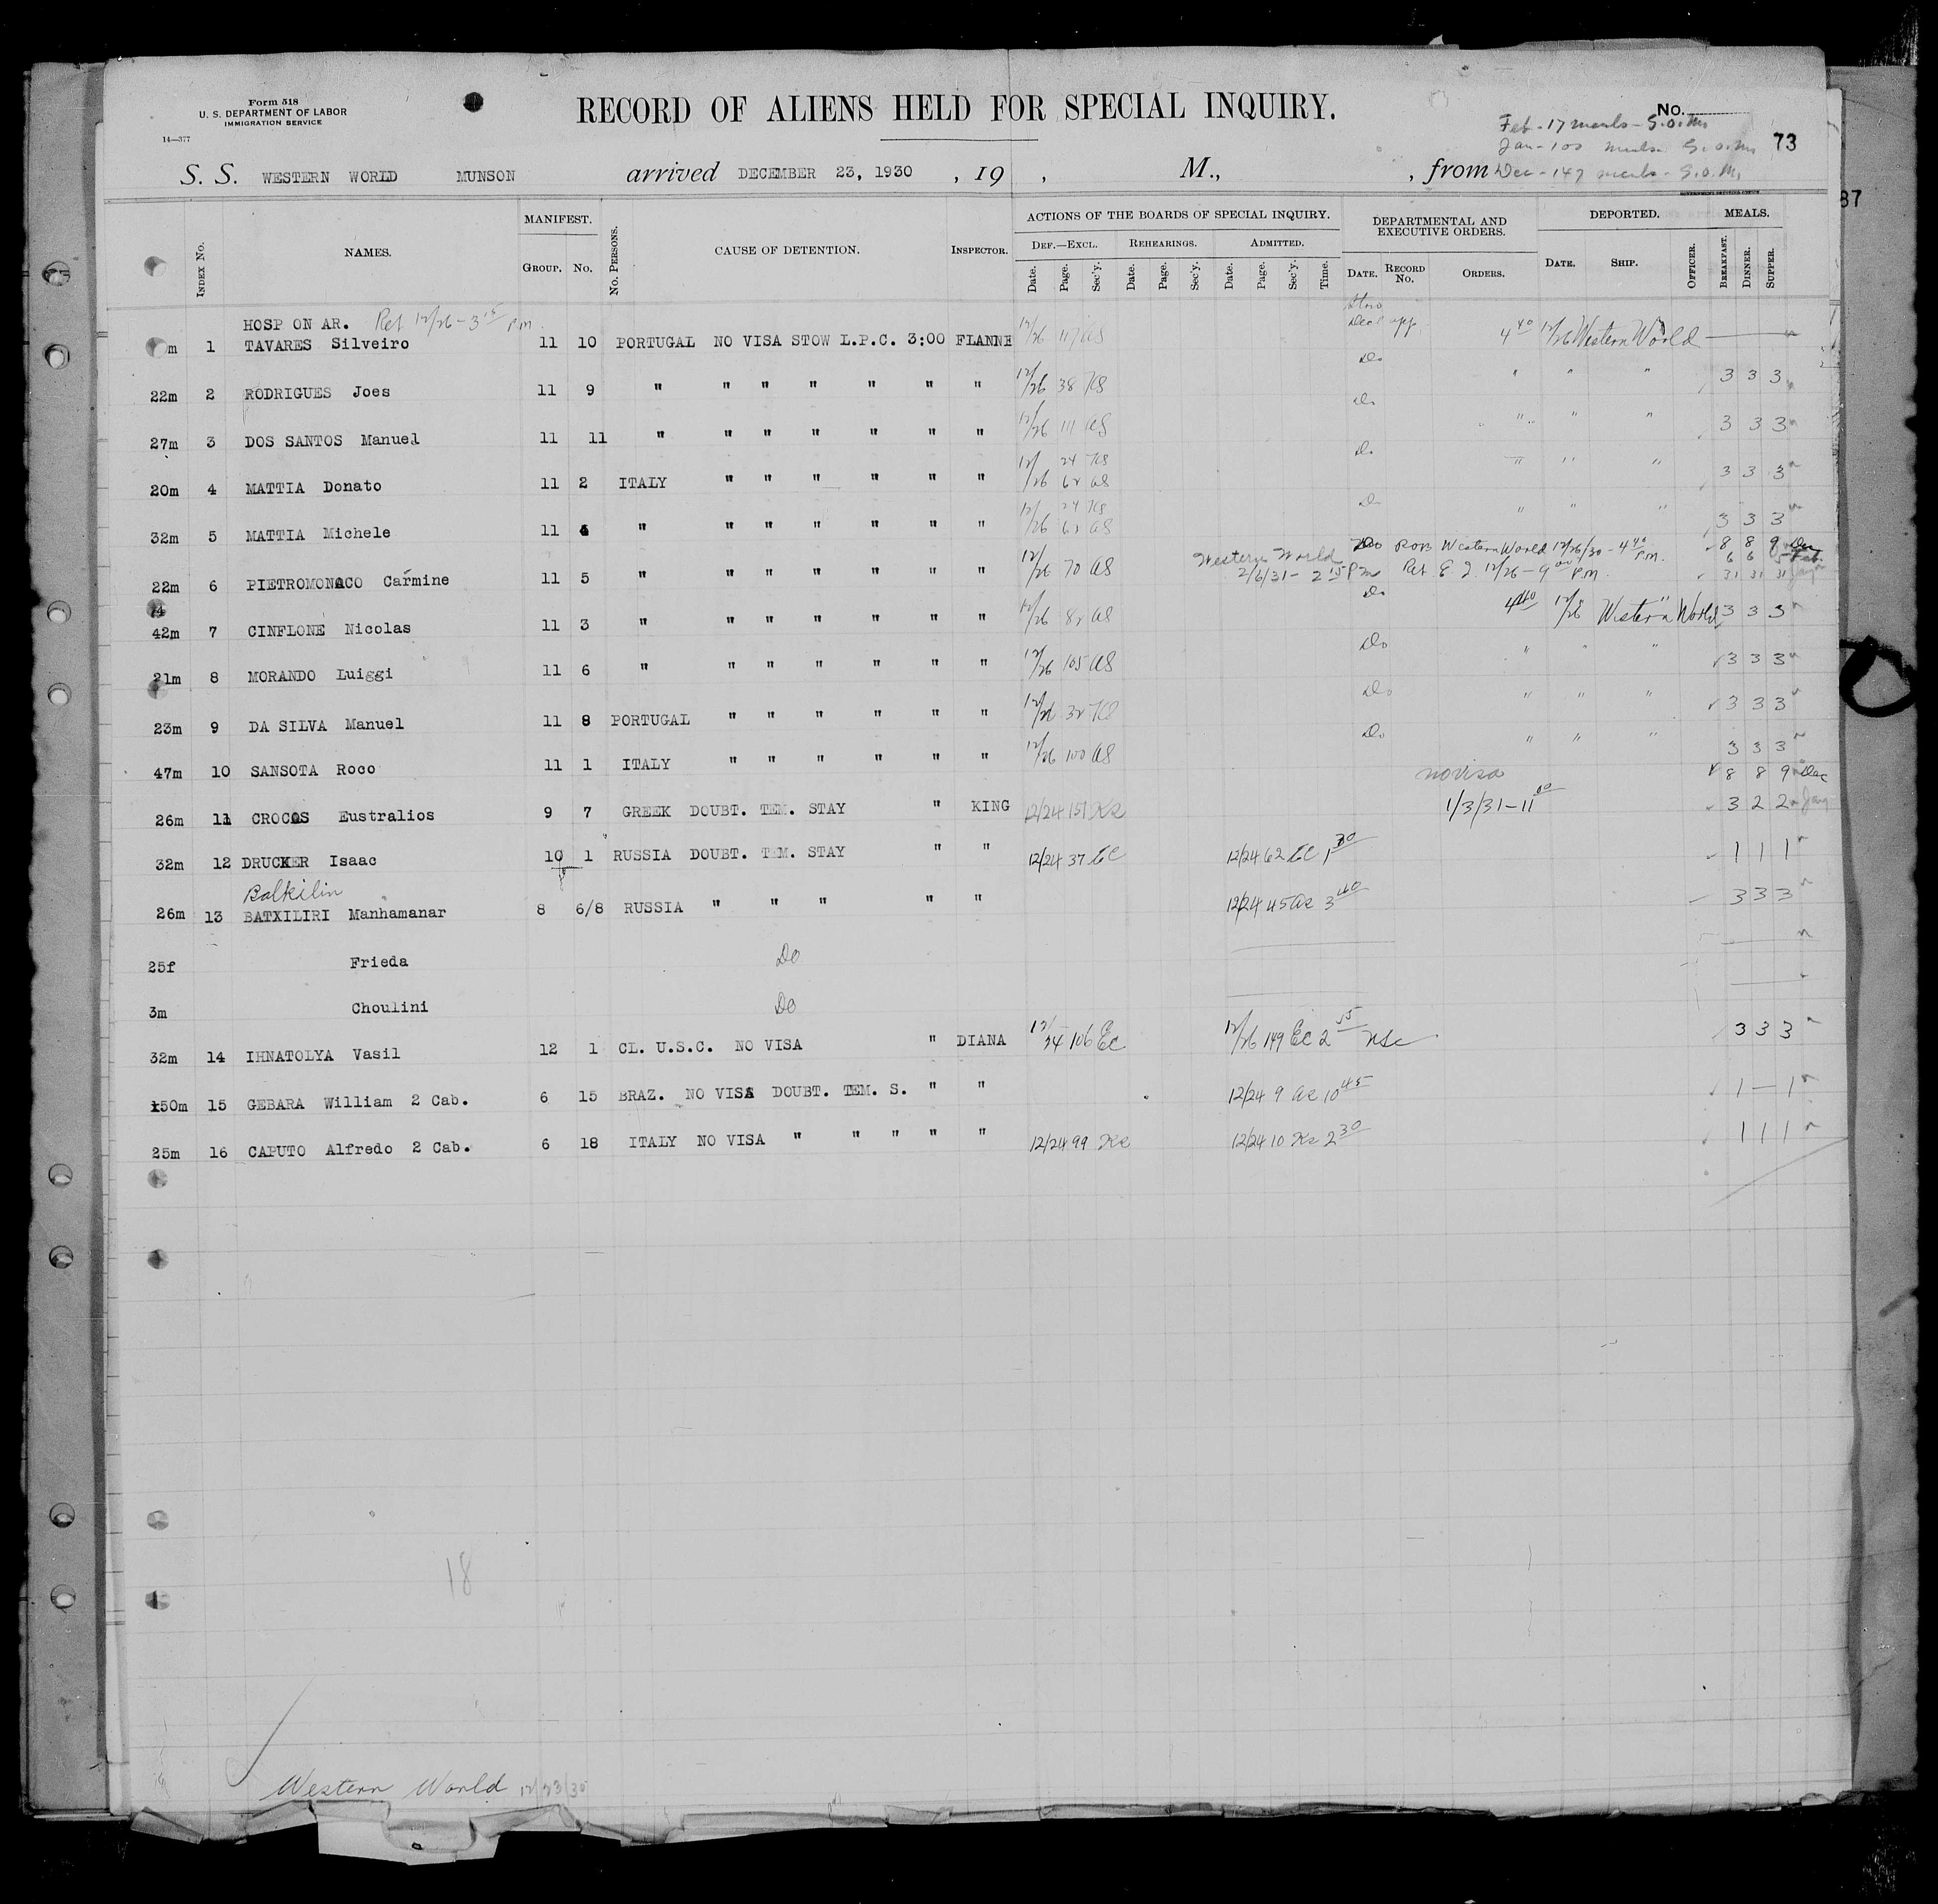 Form 518
U. S. DEPARTMENT OF LABOR
IMMIGRATION SERVICE
14—377
RECORD OF ALIENS HELD FOR SPECIAL INQUIRY.
No.
73
Feb - 17 meals - S.O.M.
Jan - 100 meals - S.O.M.
Dec - 147 meals - S.O.M.
87
S. S. WESTERN WORLD MUNSON arrived DECEMBER 23, 1930 , 19 , M., , from
INDEX NO. NAMES. MANIFEST. GROUP. NO. NO. PERSONS. CAUSE OF DETENTION. INSPECTOR. ACTIONS OF THE BOARDS OF SPECIAL INQUIRY. DEF.—EXCL. REHEARINGS. ADMITTED. Date. Page. Sec'y. Date. Page. Sec'y. Date. Page. Sec'y. Time. DEPARTMENTAL AND EXECUTIVE ORDERS. DATE. RECORD NO. ORDERS. DEPORTED. DATE. SHIP. OFFICER. MEALS. BREAKFAST. DINNER. SUPPER.
HOSP ON AR. Ret 12/26 - 3 15 P.M.
m 1 TAVARES Silveiro 11 10 PORTUGAL NO VISA STOW L.P.C. 3:00 FLANNE 12/26 117 as 4 40 12/26 Western World
22m 2 RODRIGUES Joes 11 9 " " " " " " " 12/26 38 Do " " " 3 3 3
27m 3 DOS SANTOS Manuel 11 11 " " " " " " " 12/26 111 as Do " " " 3 3 3
20m 4 MATTIA Donato 11 2 ITALY " " " " " " 12/26 24 62 as Do " " " 3 3 3
32m 5 MATTIA Michele 11 4 " " " " " " " 12/26 24 61 as Do " " " 3 3 3
Western World Do ROB Western World 12/26/30 - 4 40 P.M. 8 8 9 Dec
6 6 5 Feb.
22m 6 PIETROMONACO Carmine 11 5 " " " " " " " 12/26 70 as 2/6/31 - 2 15 Pm Ret E I 12/26 - 9 00 P.M. 31 31 31 Jan
42m 7 CINFLONE Nicolas 11 3 " " " " " " " 12/26 82 as Do 4 40 12/26 Western World 3 3 3
21m 8 MORANDO Luiggi 11 6 " " " " " " " 12/26 105 as Do " " " 3 3 3
23m 9 DA SILVA Manuel 11 8 PORTUGAL " " " " " " 12/26 32 Do " " " 3 3 3
47m 10 SANSOTA Roco 11 1 ITALY " " " " " " 12/26 100 as Do " " " 3 3 3
no visa 8 8 9 Dec
26m 11 CROCOS Eustralios 9 7 GREEK DOUBT. TEM. STAY " KING 12/24 151 1/3/31 - 11 00 3 2 2 Jan
32m 12 DRUCKER Isaac 10 1 RUSSIA DOUBT. TEM. STAY " " 12/24 37 EC 12/24 62 EC 1 30 1 1 1
Balkilin
26m 13 BATXILIRI Manhamanar 8 6/8 RUSSIA " " " " " 12/24 45 3 40 3 3 3
25f Frieda Do
3m Choulini Do
32m 14 IHNATOLYA Vasil 12 1 CL. U.S.C. NO VISA " DIANA 12/24 106 EC 12/26 149 EC 2 55 usc 3 3 3
50m 15 GEBARA William 2 Cab. 6 15 BRAZ. NO VISA DOUBT. TEM. S. " " 12/24 9 10 45 1 — 1
25m 16 CAPUTO Alfredo 2 Cab. 6 18 ITALY NO VISA " " " " " 12/24 99 12/24 10 2 30 1 1 1
18
Western World 12/23/30